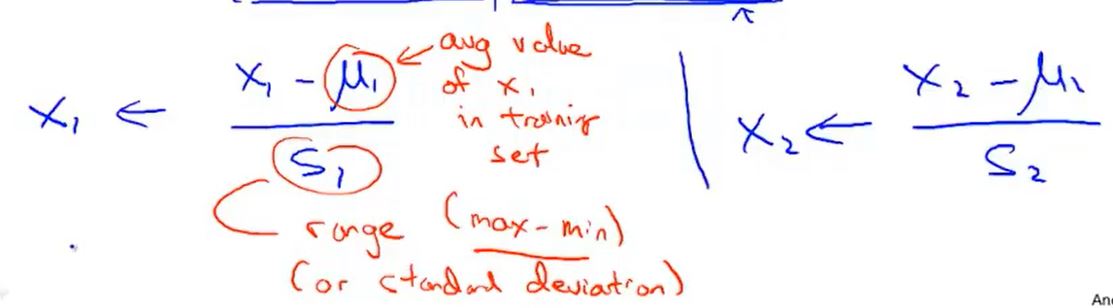 x₁ ← (x₁ - μ₁) / s₁
← avg value
of x₁
in training
set
range (max - min)
(or standard deviation)
x₂ ← (x₂ - μ₂) / s₂
An